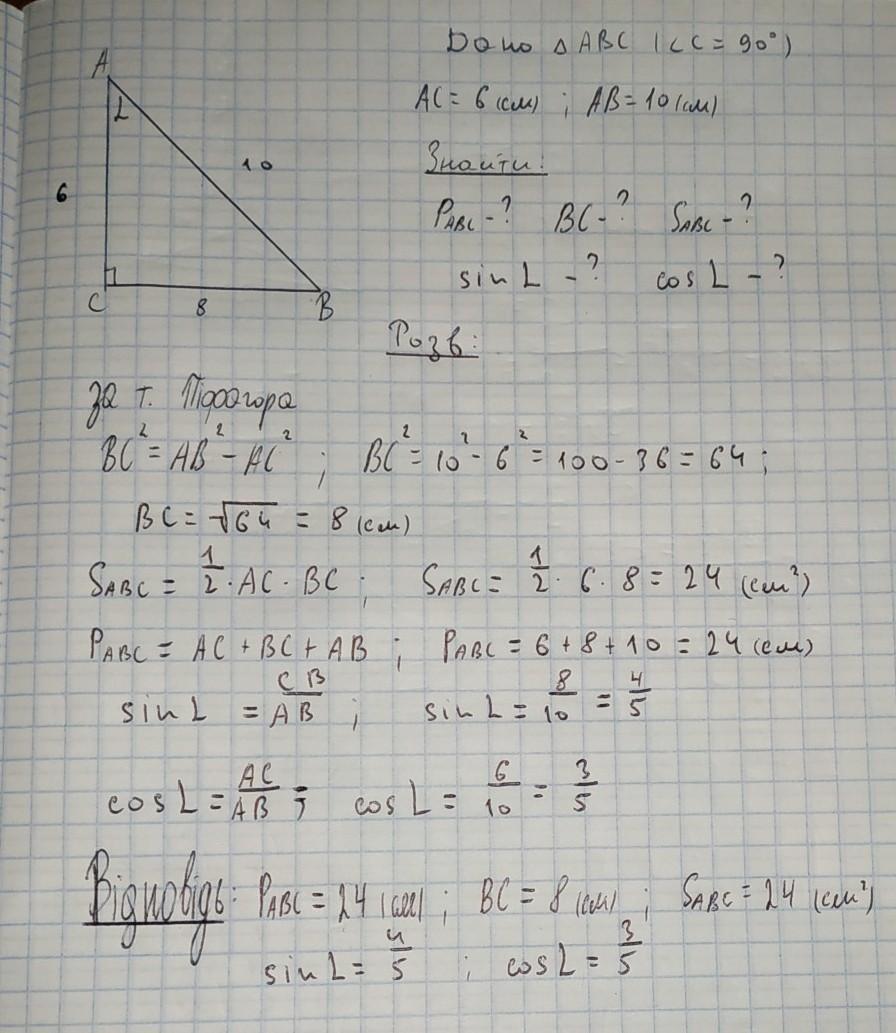 Дано △ ABC (∠C = 90°)
AC = 6 (см) ; AB = 10 (см)
Знайти:
P_ABC - ? BC - ? S_ABC - ?
sin L - ? cos L - ?
A
L
10
6
C
8
B
Розв:
За т. Піфагора
BC² = AB² - AC² ; BC² = 10² - 6² = 100 - 36 = 64 ;
BC = √64 = 8 (см)
S_ABC = 1/2 · AC · BC ; S_ABC = 1/2 · 6 · 8 = 24 (см²)
P_ABC = AC + BC + AB ; P_ABC = 6 + 8 + 10 = 24 (см)
sin L = CB/AB ; sin L = 8/10 = 4/5
cos L = AC/AB ; cos L = 6/10 = 3/5
Відповідь: P_ABC = 24 (см) ; BC = 8 (см) ; S_ABC = 24 (см²)
sin L = 4/5 ; cos L = 3/5